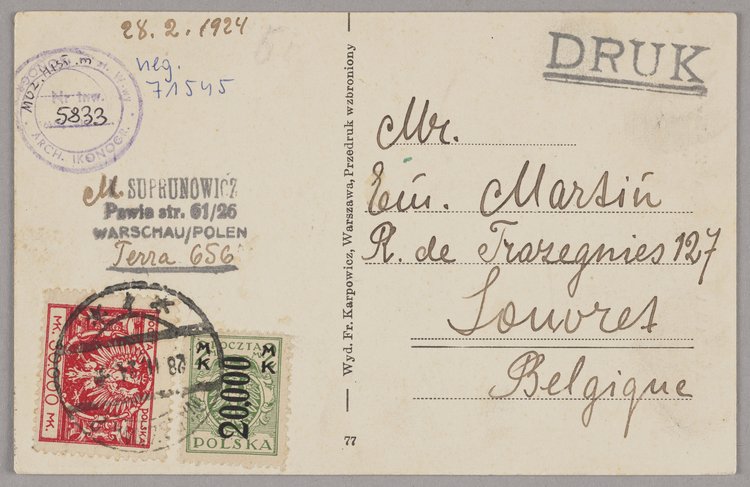 28. 2. 1924
neg.
71545
Nr inw.
5833
ARCH. IKONOGR.
M. SUPRUNOWICZ
Pawia str. 61/26
WARSCHAU/POLEN
Terra 656
MK.
MK.
POLSKA
MK
MK
POCZTA
20.000
POLSKA
Wyd. Fr. Karpowicz, Warszawa, Przedruk wzbroniony
77
DRUK
Mr.
Em. Martin
R. de Trazegnies 127
Souvret
Belgique